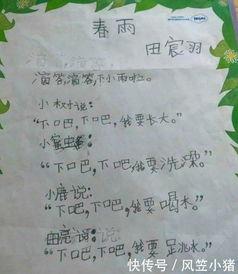 春雨
田宸羽
滴答,滴答,下小雨啦。
小树说:
“下口巴,下口巴,我要长大。”
小蜜虫
“下口巴,下口巴,我要洗澡。”
小鹿说:
“下吧,下吧,我要喝水。”
说:
“下口巴,下吧,我要足兆水。”
快传号/风笠小猪